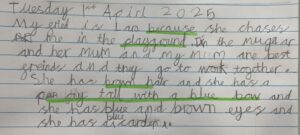 Tuesday 1st Apirl 2025
My grend is Ian because she chases
me in the playground. In the mughar
and her mum and my mum are best
greinds and they go to work together.
She has brown hair and she has a
pony tail with a blue bow and
she has blue and brown eyes and
she has a blue cardyn.